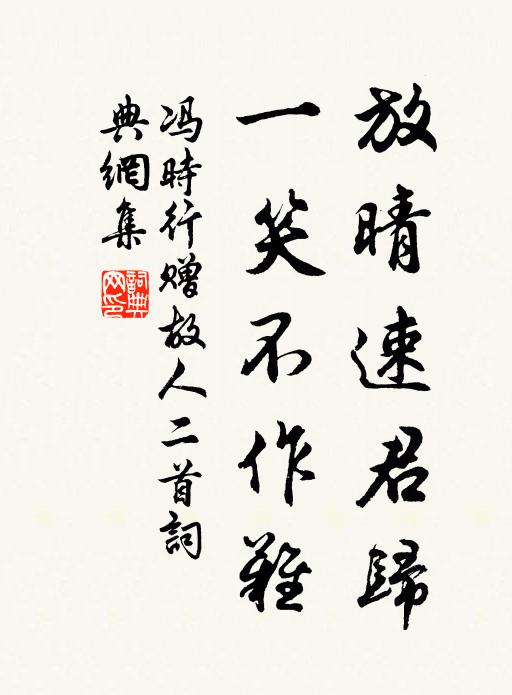 放晴速君歸
一笑不作難
冯時行赠故人二首詞
典網集
詞典
网印